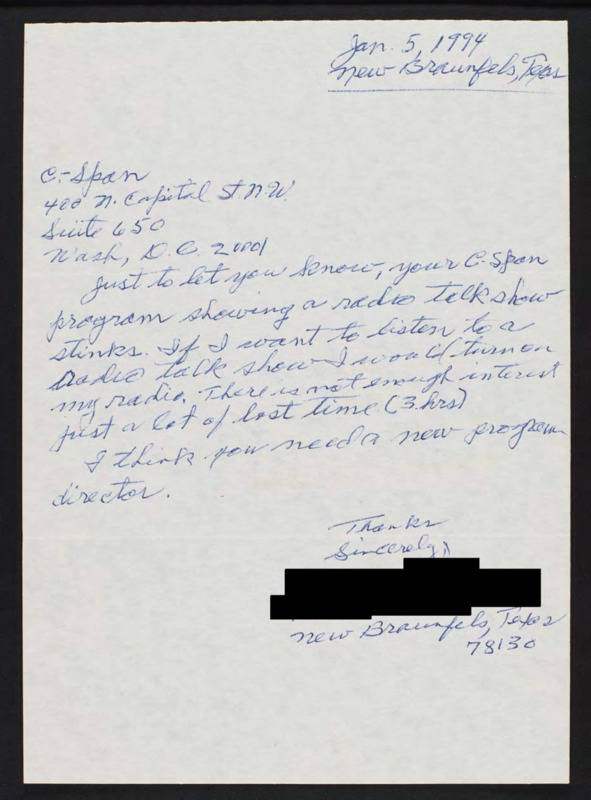 Jan. 5, 1994
New Braunfels, Texas
C-Span
400 N. Capital St. N.W.
Suite 650
Wash, D.C. 20001
Just to let you know, your C-Span
program showing a radio talk show
stinks. If I want to listen to a
radio talk show I would turn on
my radio. There is not enough interest
just a lot of lost time (3 hrs)
I think you need a new program
director.
Thanks
Sincerely,
New Braunfels, Texas
78130